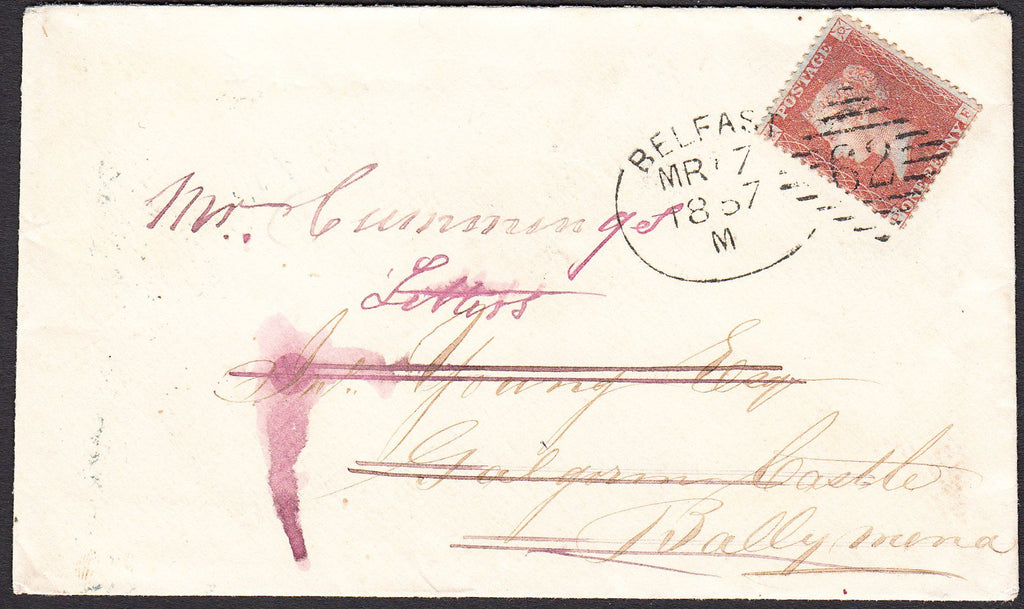 POSTAGE
ONE PENNY
BELFAST
MR 17
1857
M
62
Mr. Cummings
Letters
Jno. Young Esq
Galgorm Castle
Ballymena